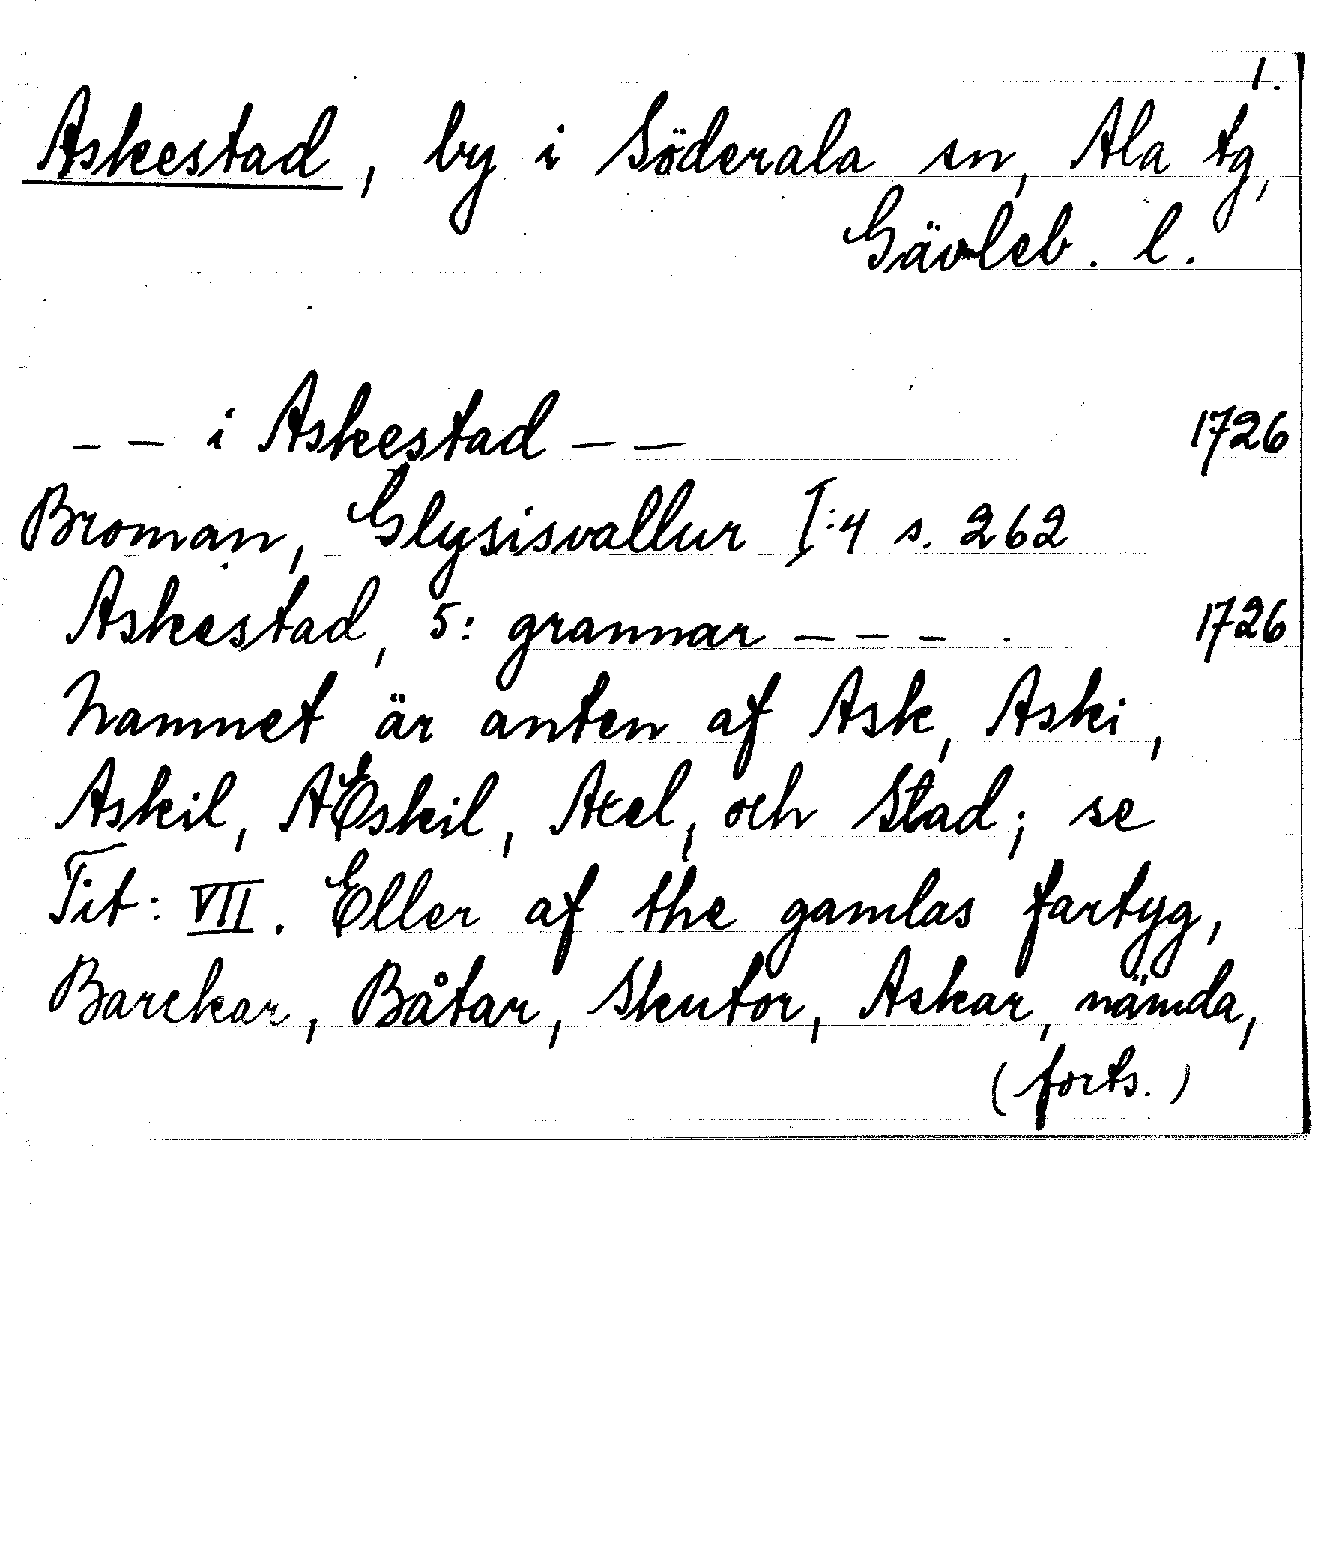 1.
Askestad, by i Söderala sn, Ala tg,
Gävleb. l.
– – i Askestad – – 1726
Broman, Glysisvallur I:4 s. 262
Askestad, 5: grannar – – – . 1726
Namnet är anten af Ask, Aski,
Askil, AEskil, Axel, och Stad; se
Tit: VII. Eller af the gamlas fartyg,
Barckar, Båtar, Skutor, Askar, nämda,
(forts.)